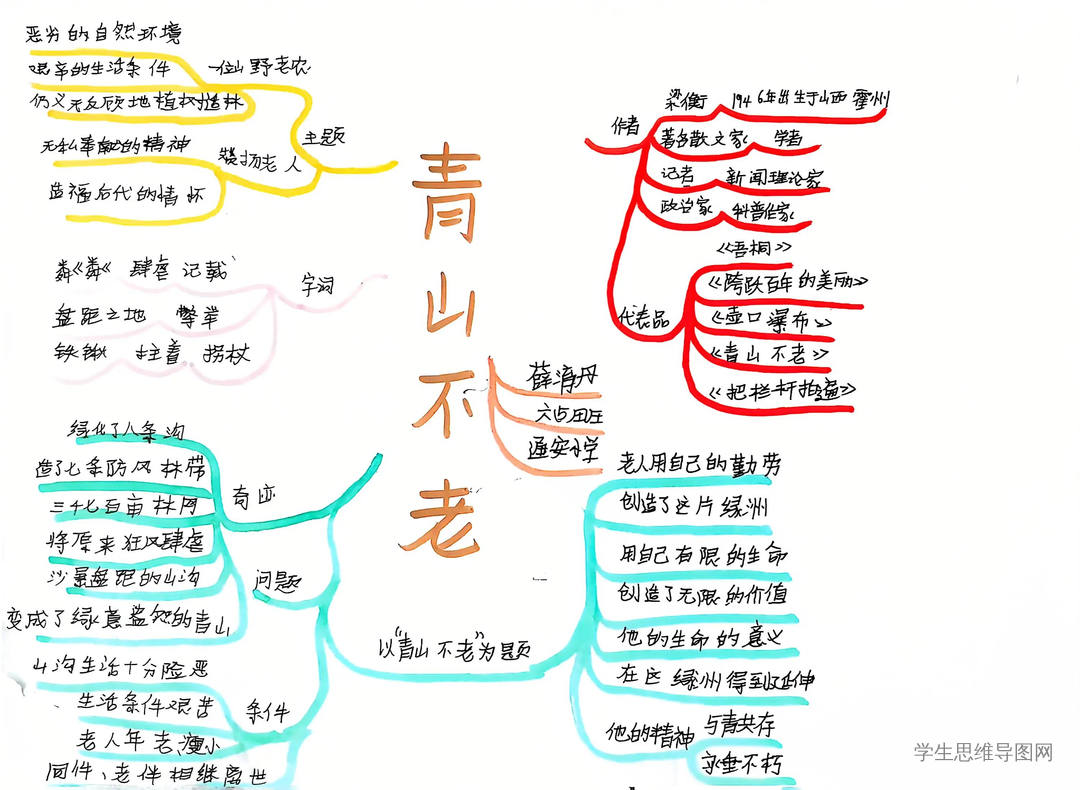 青山不老
薛清丹
六占田庄
通安小学
主题
一位山野老农
恶劣的自然环境
艰辛的生活条件
仍义无反顾地植树造林
赞扬老人
无私奉献的精神
造福后代的情怀
字词
肆虐 记载
盘踞之地
铁锹 拄着 拐杖
作者
梁衡
1946年出生于山西霍州
著名散文家
学者
记者
新闻理论家
政治家
科普作家
代表品
《吾桐》
《跨跃百年的美丽》
《壶口瀑布》
《青山不老》
《把栏杆拍遍》
问题
奇迹
绿化了八条沟
造了七条防风林带
三千七百亩林网
将原来狂风肆虐
沙暴盘距的山沟
变成了绿意盎然的青山
条件
山沟生活十分险恶
生活条件艰苦
老人年老、瘦小
同伴、老伴相继离世
以"青山不老"为题
老人用自己的勤劳
创造了这片绿洲
用自己有限的生命
创造了无限的价值
他的生命的意义
在这绿洲得到延伸
他的精神
与青共存
永垂不朽
学生思维导图网